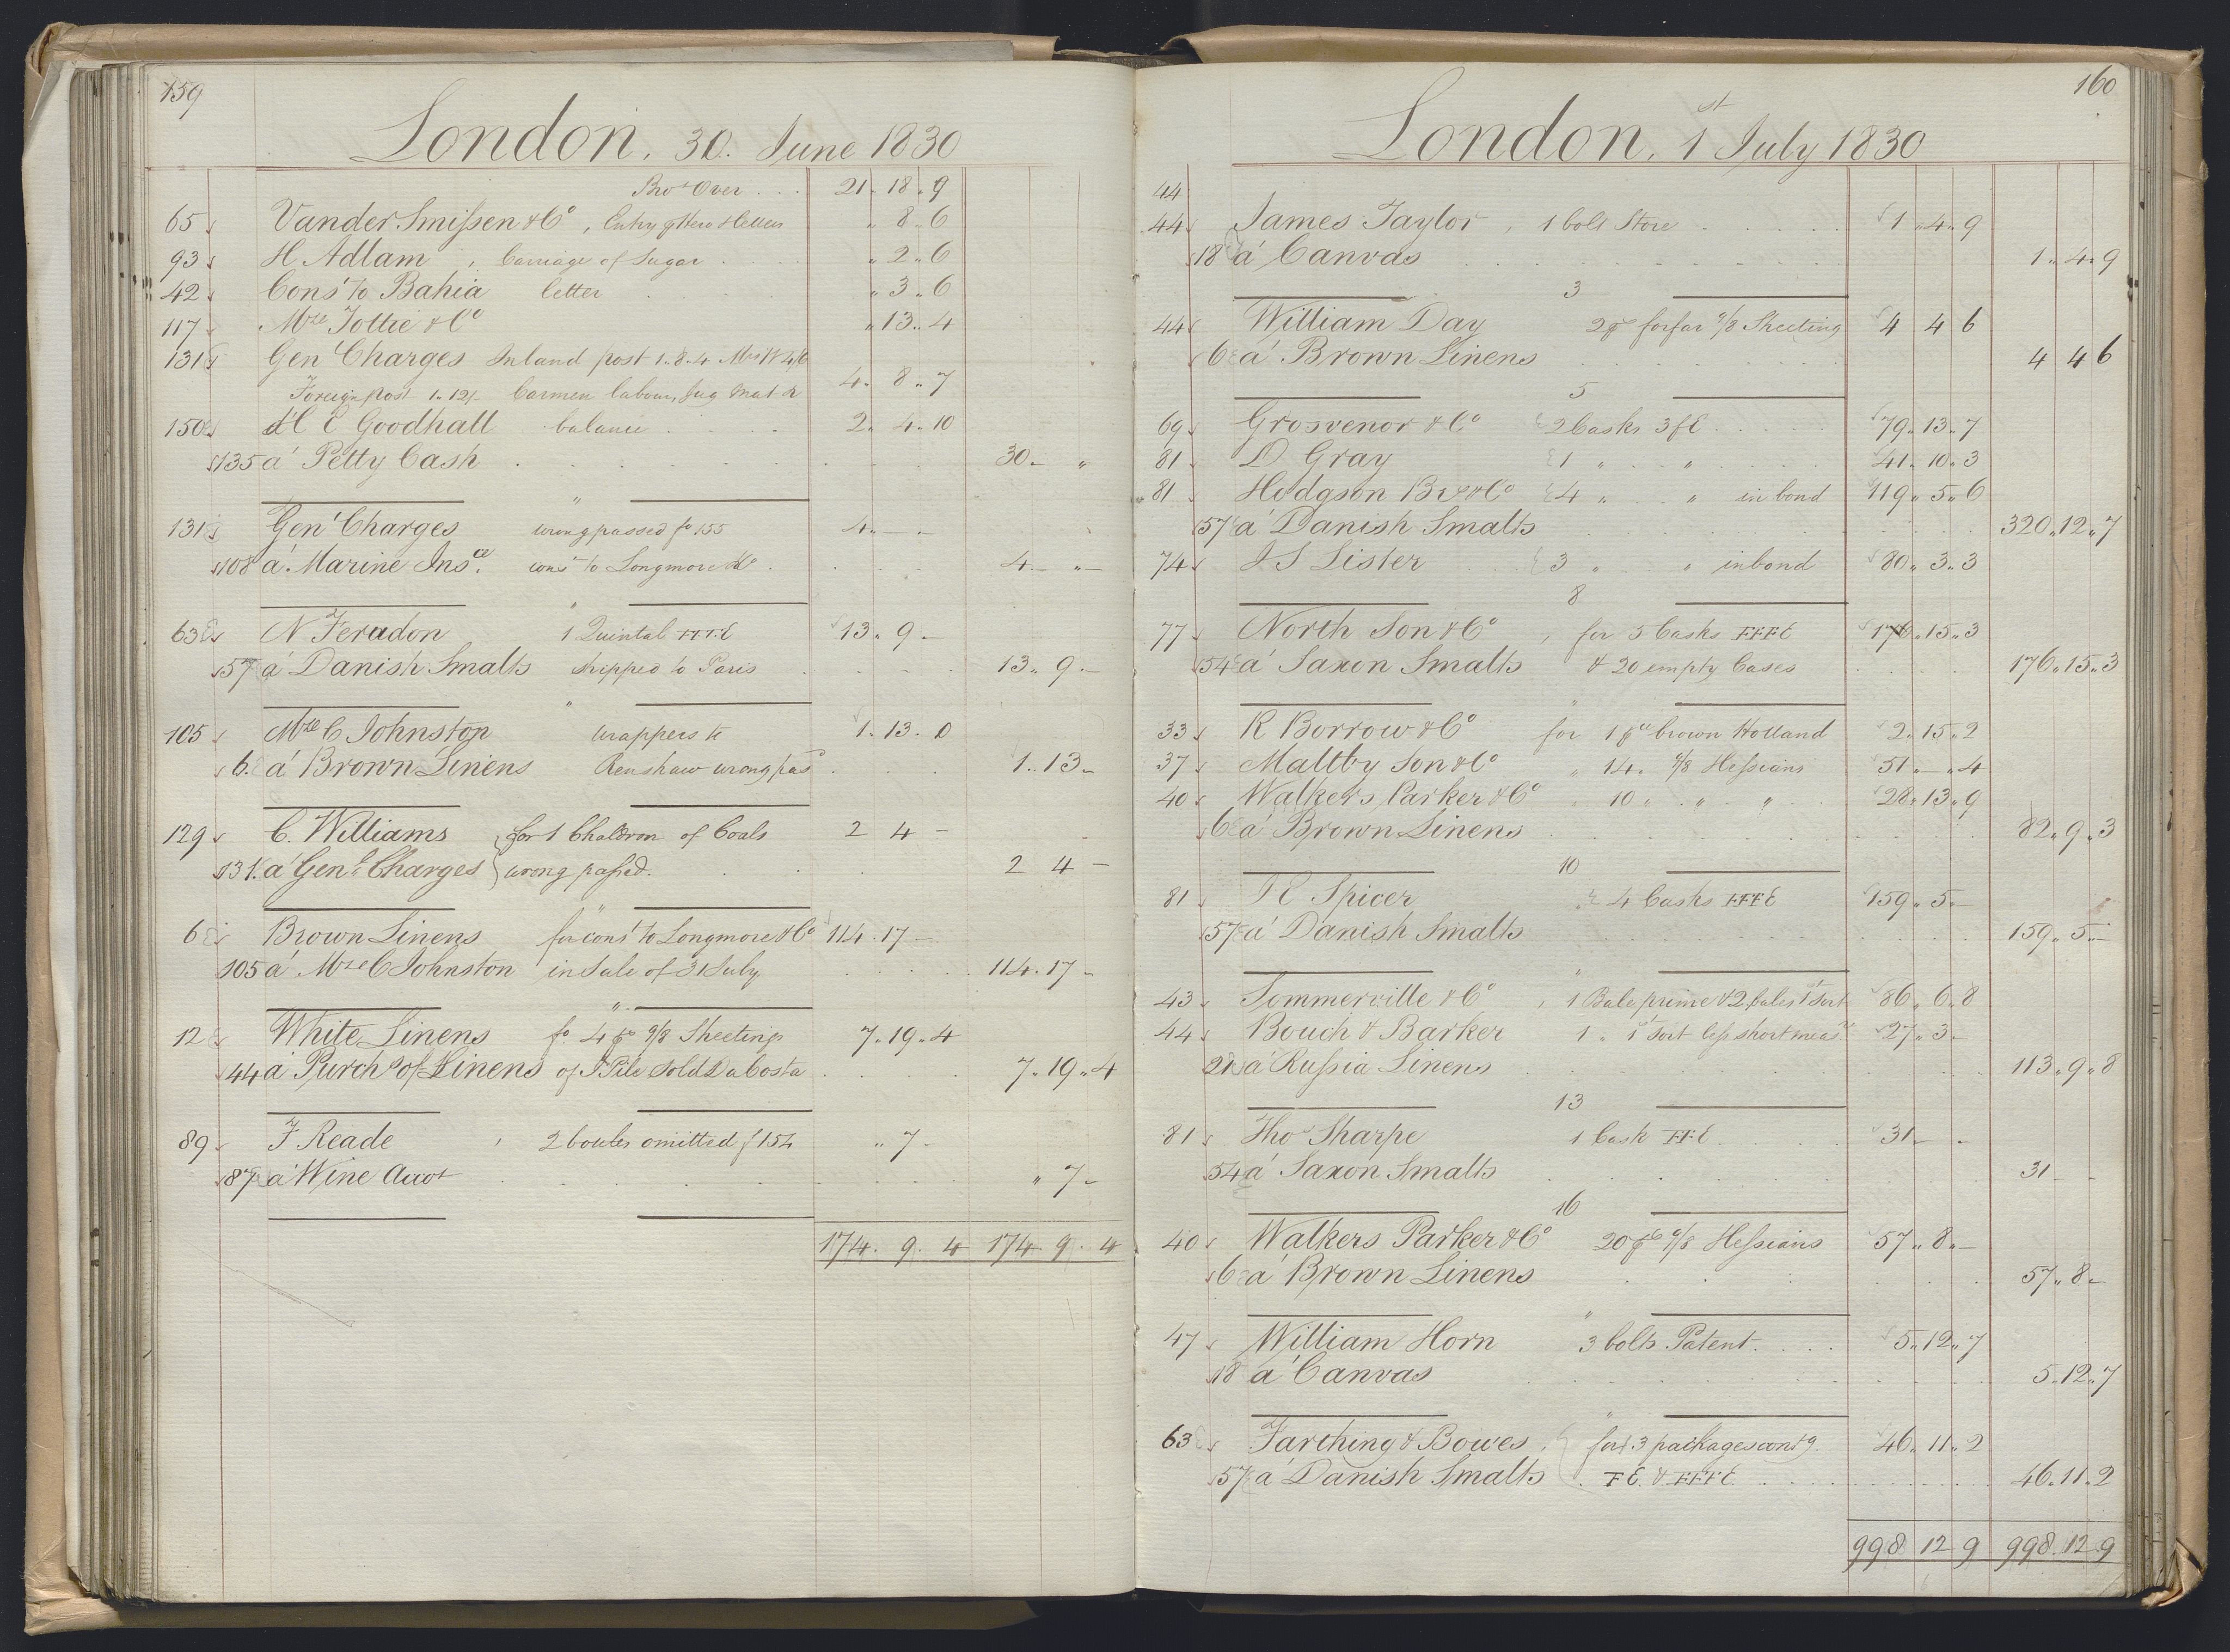 159
London. 30. June 1830
Bro.t Over . . . 21. 18. 9
65 Vander Smissen & Co , Entry pr Hero & letters " 8. 6
93 H Adlam , Carriage of Sugar . . " 2. 6
42 Cons.t to Bahia letter . . " 3. 6
117 Mdse Tottie & Co " 13. 4
131 Gen.l Charges Inland post 1. 8. 4
Foreign post 1. 12/. Carmen labour, Jug Mat & 4. 8. 7
150 H E Goodhall balance . . . 2. 4. 10
135 a Petty Cash . . . 30. – "
"
131 Gen.l Charges wrong passed fo 155 4. – –
108 a Marine Ins.ce cons.t to Longmore & Co . . . 4. – " –
"
63 N Feradon 1 Quintal FFFE 13. 9. –
57 a Danish Smalts shipped to Paris . . . 13. 9. –
"
105 Mdse C Johnston wrappers to 1. 13. 0
6. a Brown Linens Renshaw wrong pas.d . . . 1. 13 –
129 C. Williams for 1 Chaldron of Coals 2 4 –
131. a Gen.l Charges wrong passed. . . . 2 4 –
"
6 Brown Linens for cons.t to Longmore & Co 114. 17 –
105 a Mdse C Johnston in Sale of 31 July . . . 114. 17 –
"
12 White Linens fo 4 ps 9/8 Sheeting 7. 19. 4
44 a Purch.s of Linens of J Pile sold Da Costa . . . 7. 19. 4
89 F Reade , 2 bottles omitted f 154 " 7 –
87 a Wine Acco.t . . . " 7 –
174. 9. 4 174. 9. 4
160
London. 1st July 1830
44
44 James Taylor , 1 bolt Store . . . 1. 4. 9
18 a Canvas . . . 1. 4. 9
3
44 William Day 2 ps forfar 9/8 Sheeting 4 4 6
6 a Brown Linens . . . 4 4 6
5
69 Grosvenor & Co 2 Casks 3 f E . . . 79. 13. 7
81 D Gray 1 " . . " . . . 41. 10. 3
81 Hodgson Bro & Co 4 " . . " in bond 119. 5. 6
57 a Danish Smalts . . . 320. 12. 7
74 J S Lister 3 " . . " in bond 80. 3. 3
8
77 North Son & Co , for 5 Casks FFFE 176. 15. 3
54 a Saxon Smalts & 20 empty Cases . . . 176. 15. 3
"
33 R Borrow & Co for 1 pce brown Holland 2. 15. 2
37 Maltby Son & Co " 14. 9/8 Hessians 51. – . 4
40 Walkers Parker & Co " 10 " . " . " . . 28. 13. 9
6 a Brown Linens . . . 82. 9. 3
10
81 R Spicer 4 Casks FFFE 159. 5. –
57 a Danish Smalts . . . 159. 5. –
"
43 Sommerville & Co , 1 Bale prime & 2 bales 1st Sort 86. 6. 8
44 Bouch & Barker 1 " 1st Sort less short meas.e 27. 3. –
21 a Russia Linens . . . 113. 9. 8
13
81 Thos Sharpe 1 Cask FFE . . . 31 – –
54 a Saxon Smalts . . . 31 – –
16
40 Walkers Parker & Co 20 ps 9/8 Hessians 57. 8. –
6 a Brown Linens . . . 57. 8. –
"
47 William Horn 3 bolts Patent . . . 5. 12. 7
18 a Canvas . . . 5. 12. 7
"
63 Farthing & Bowes , for 3 packages cont.g 46. 11. 2
57 a Danish Smalts . FE. & FFFE . . . 46. 11. 2
998 12 9 998. 12. 9